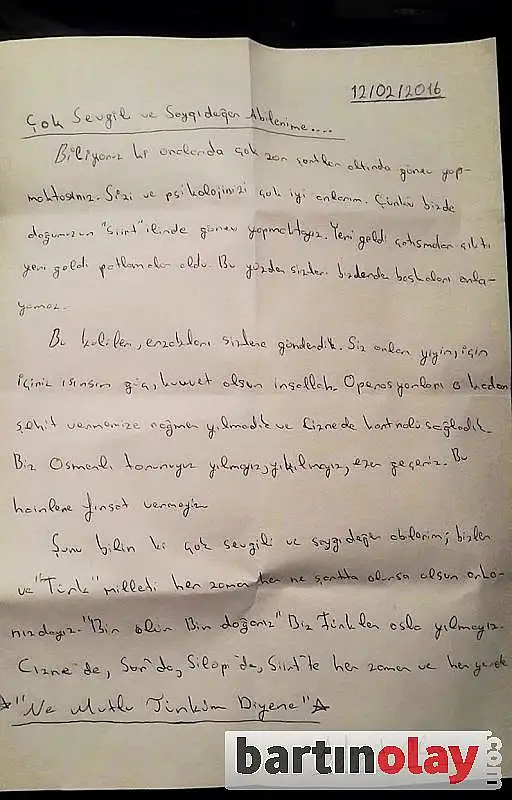 12/02/2016
Çok Sevgili ve Saygıdeğer Abilerime....
Biliyoruz ki oralarda çok zor şartlar altında görev yap-
maktasınız. Sizi ve psikolojinizi çok iyi anlarım. Çünkü bizde
doğumuzun "Siirt" ilinde görev yapmaktayız. Yeri geldi çatışmalar çıktı
yeri geldi patlamalar oldu. Bu yüzden sizleri bizden başkaları anla-
yamaz.
Bu kolileri, erzakları sizlere gönderdik. Siz onları yiyin, için
içiniz ısınsın güç, kuvvet olsun inşallah. Operasyonları o kadar
şehit vermemize rağmen yılmadık ve Cizrede kontrolu sağladık.
Biz Osmanlı torunuyuz yılmayız, yıkılmayız, ezer geçeriz. Bu
hainlere fırsat vermeyiz.
Şunu bilin ki çok sevgili ve saygıdeğer abilerim; bizler
ve "Türk" milleti her zaman her ne şartta olursa olsun arka-
nızdayız. "Bir ölür Bin doğarız" Biz Türkler asla yılmayız.
Cizre'de, Sur'da, Silopi'de, Siirt'te her zaman ve her yerde
"Ne Mutlu Türküm Diyene"
bartınolay.com